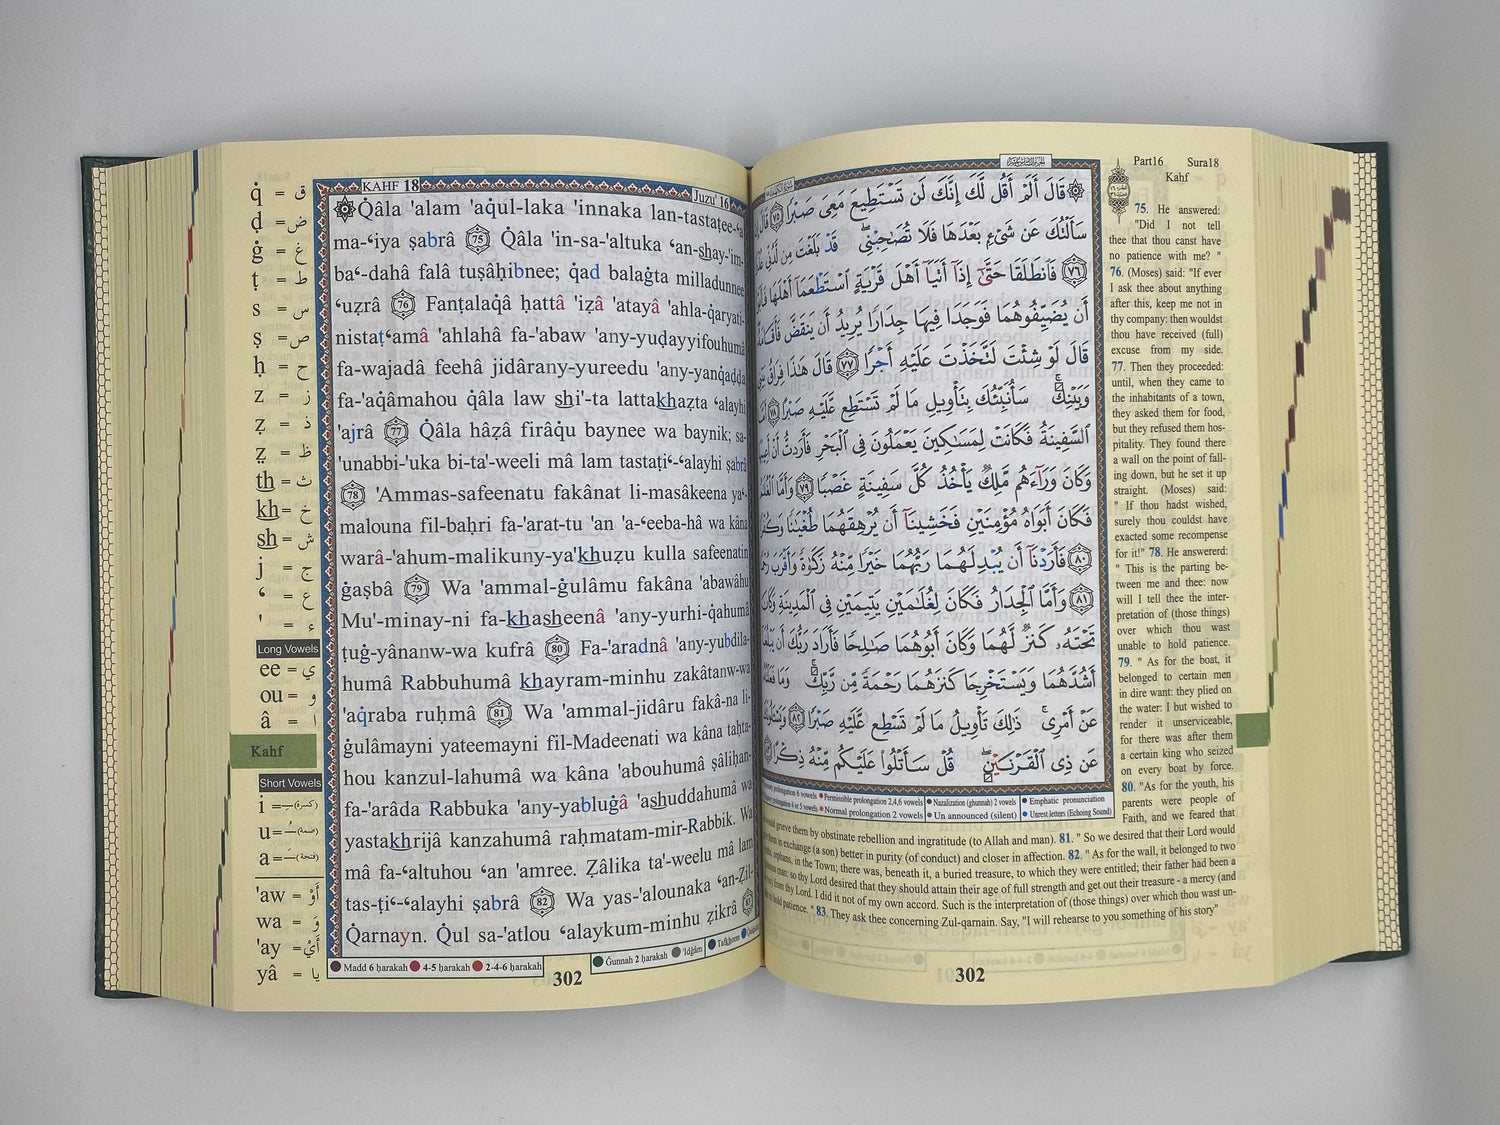 ق = q̇
ض = ḍ
غ = ġ
ط = ṭ
س = s
ص = ṣ
ح = ḥ
ز = z
ذ = ẓ
ظ = z̤
ث = th
خ = kh
ش = sh
ج = j
ع = ʻ
ء = '
Long Vowels
ee = ي
ou = و
â = ا
Kahf
Short Vowels
i = (كسرة)
u = (ضمة)
a = (فتحة)
'aw = أَوْ
wa = وَ
'ay = أَيْ
yâ = يا
KAHF 18 Juzu' 16
Qâla 'alam 'aq̇ul-laka 'innaka lan-tastaṭee-ʻa
ma-ʻiya ṣabrâ 75 Q̇âla 'in-sa-'altuka ʻan-shay-'im-
baʻ-dahâ falâ tuṣâḥibnee; q̇ad balaġta milladunnee
ʻuẓrâ 76 Fanṭalaq̇â ḥattâ 'iẓâ 'atayâ 'ahla-q̇aryati-
nistaṭʻamâ 'ahlahâ fa-'abaw 'any-yuḍayyifouhumâ
fa-wajadâ feehâ jidârany-yureedu 'any-yanq̇aḍḍa
fa-'aq̇âmahou q̇âla law shi'-ta lattakhaẓta ʻalayhi
'ajrâ 77 Q̇âla hâẓâ firâq̇u baynee wa baynik; sa-
'unabbi-'uka bi-ta'-weeli mâ lam tastaṭiʻ-ʻalayhi ṣabrâ
78 'Ammas-safeenatu fakânat li-masâkeena yaʻ-
malouna fil-baḥri fa-'arat-tu 'an 'a-ʻeeba-hâ wa kâna
warâ-'ahum-malikuny-ya'khuẓu kulla safeenatin
ġaṣbâ 79 Wa 'ammal-ġulâmu fakâna 'abawâhu
Mu'-minay-ni fa-khasheenâ 'any-yurhi-q̇ahumâ
ṭuġ-yânanw-wa kufrâ 80 Fa-'aradnâ 'any-yubdila-
humâ Rabbuhumâ khayram-minhu zakâtanw-wa
'aq̇raba ruḥmâ 81 Wa 'ammal-jidâru fakâ-na li-
ġulâmayni yateemayni fil-Madeenati wa kâna taḥta-
hou kanzul-lahumâ wa kâna 'abouhumâ ṣâliḥan-
fa-'arâda Rabbuka 'any-yabluġâ 'ashuddahumâ wa
yastakhrijâ kanzahumâ raḥmatam-mir-Rabbik. Wa
mâ fa-ʻaltuhou ʻan 'amree. Ẓâlika ta'-weelu mâ lam
tas-ṭiʻ-ʻalayhi ṣabrâ 82 Wa yas-'alounaka ʻan-Ẓil-
Q̇arnayn. Q̇ul sa-'atlou ʻalaykum-minhu ẓikrâ 83
Madd 6 ḥarakah 4-5 ḥarakah 2-4-6 ḥarakah Ġunnah 2 ḥarakah 'Idġâm Tafkheem
302
قَالَ أَلَمْ أَقُل لَّكَ إِنَّكَ لَن تَسْتَطِيعَ مَعِىَ صَبْرًا ٧٥ قَالَ
سَأَلْتُكَ عَن شَىْءٍ بَعْدَهَا فَلَا تُصَـٰحِبْنِى قَدْ بَلَغْتَ مِن لَّدُنِّى
٧٦ فَٱنطَلَقَا حَتَّىٰٓ إِذَآ أَتَيَآ أَهْلَ قَرْيَةٍ ٱسْتَطْعَمَآ أَهْلَهَا
أَن يُضَيِّفُوهُمَا فَوَجَدَا فِيهَا جِدَارًا يُرِيدُ أَن يَنقَضَّ
قَالَ لَوْ شِئْتَ لَتَّخَذْتَ عَلَيْهِ أَجْرًا ٧٧ قَالَ هَـٰذَا فِرَاقُ
وَبَيْنِكَ سَأُنَبِّئُكَ بِتَأْوِيلِ مَا لَمْ تَسْتَطِع عَّلَيْهِ صَبْرًا ٧٨
ٱلسَّفِينَةُ فَكَانَتْ لِمَسَـٰكِينَ يَعْمَلُونَ فِى ٱلْبَحْرِ فَأَرَدتُّ أَنْ
وَكَانَ وَرَآءَهُم مَّلِكٌ يَأْخُذُ كُلَّ سَفِينَةٍ غَصْبًا ٧٩ وَأَمَّا
فَكَانَ أَبَوَاهُ مُؤْمِنَيْنِ فَخَشِينَآ أَن يُرْهِقَهُمَا طُغْيَـٰنًا
٨٠ فَأَرَدْنَآ أَن يُبْدِلَهُمَا رَبُّهُمَا خَيْرًا مِّنْهُ زَكَوٰةً وَأَقْرَبَ
٨١ وَأَمَّا ٱلْجِدَارُ فَكَانَ لِغُلَـٰمَيْنِ يَتِيمَيْنِ فِى ٱلْمَدِينَةِ
تَحْتَهُۥ كَنزٌ لَّهُمَا وَكَانَ أَبُوهُمَا صَـٰلِحًا فَأَرَادَ رَبُّكَ أَن
أَشُدَّهُمَا وَيَسْتَخْرِجَا كَنزَهُمَا رَحْمَةً مِّن رَّبِّكَ وَمَا
عَنْ أَمْرِى ذَٰلِكَ تَأْوِيلُ مَا لَمْ تَسْطِع عَّلَيْهِ صَبْرًا ٨٢
عَن ذِى ٱلْقَرْنَيْنِ قُلْ سَأَتْلُوا۟ عَلَيْكُم مِّنْهُ ذِكْرًا
prolongation 6 vowels Permissible prolongation 2,4,6 vowels Nazalization (ghunnah) 2 vowels Emphatic pronunciation
prolongation 4 or 5 vowels Normal prolongation 2 vowels Un announced (silent) Unrest letters (Echoing Sound)
Part16 Sura18
Kahf
75. He answered:
"Did I not tell
thee that thou canst have
no patience with me? "
76. (Moses) said: "If ever
I ask thee about anything
after this, keep me not in
thy company: then wouldst
thou have received (full)
excuse from my side.
77. Then they proceeded:
until, when they came to
the inhabitants of a town,
they asked them for food,
but they refused them hos-
pitality. They found there
a wall on the point of fall-
ing down, but he set it up
straight. (Moses) said:
" If thou hadst wished,
surely thou couldst have
exacted some recompense
for it!" 78. He answererd:
" This is the parting be-
tween me and thee: now
will I tell thee the inter-
pretation of (those things)
over which thou wast
unable to hold patience.
79. " As for the boat, it
belonged to certain men
in dire want: they plied on
the water: I but wished to
render it unserviceable,
for there was after them
a certain king who seized
on every boat by force.
80. "As for the youth, his
parents were people of
Faith, and we feared that
would grieve them by obstinate rebellion and ingratitude (to Allah and man). 81. " So we desired that their Lord would
them in exchange (a son) better in purity (of conduct) and closer in affection. 82. " As for the wall, it belonged to two
orphans, in the Town; there was, beneath it, a buried treasure, to which they were entitled; their father had been a
man: so thy Lord desired that they should attain their age of full strength and get out their treasure - a mercy (and
from thy Lord. I did it not of my own accord. Such is the interpretation of (those things) over which thou wast un-
hold patience. " 83. They ask thee concerning Zul-qarnain. Say, "I will rehearse to you something of his story"
302